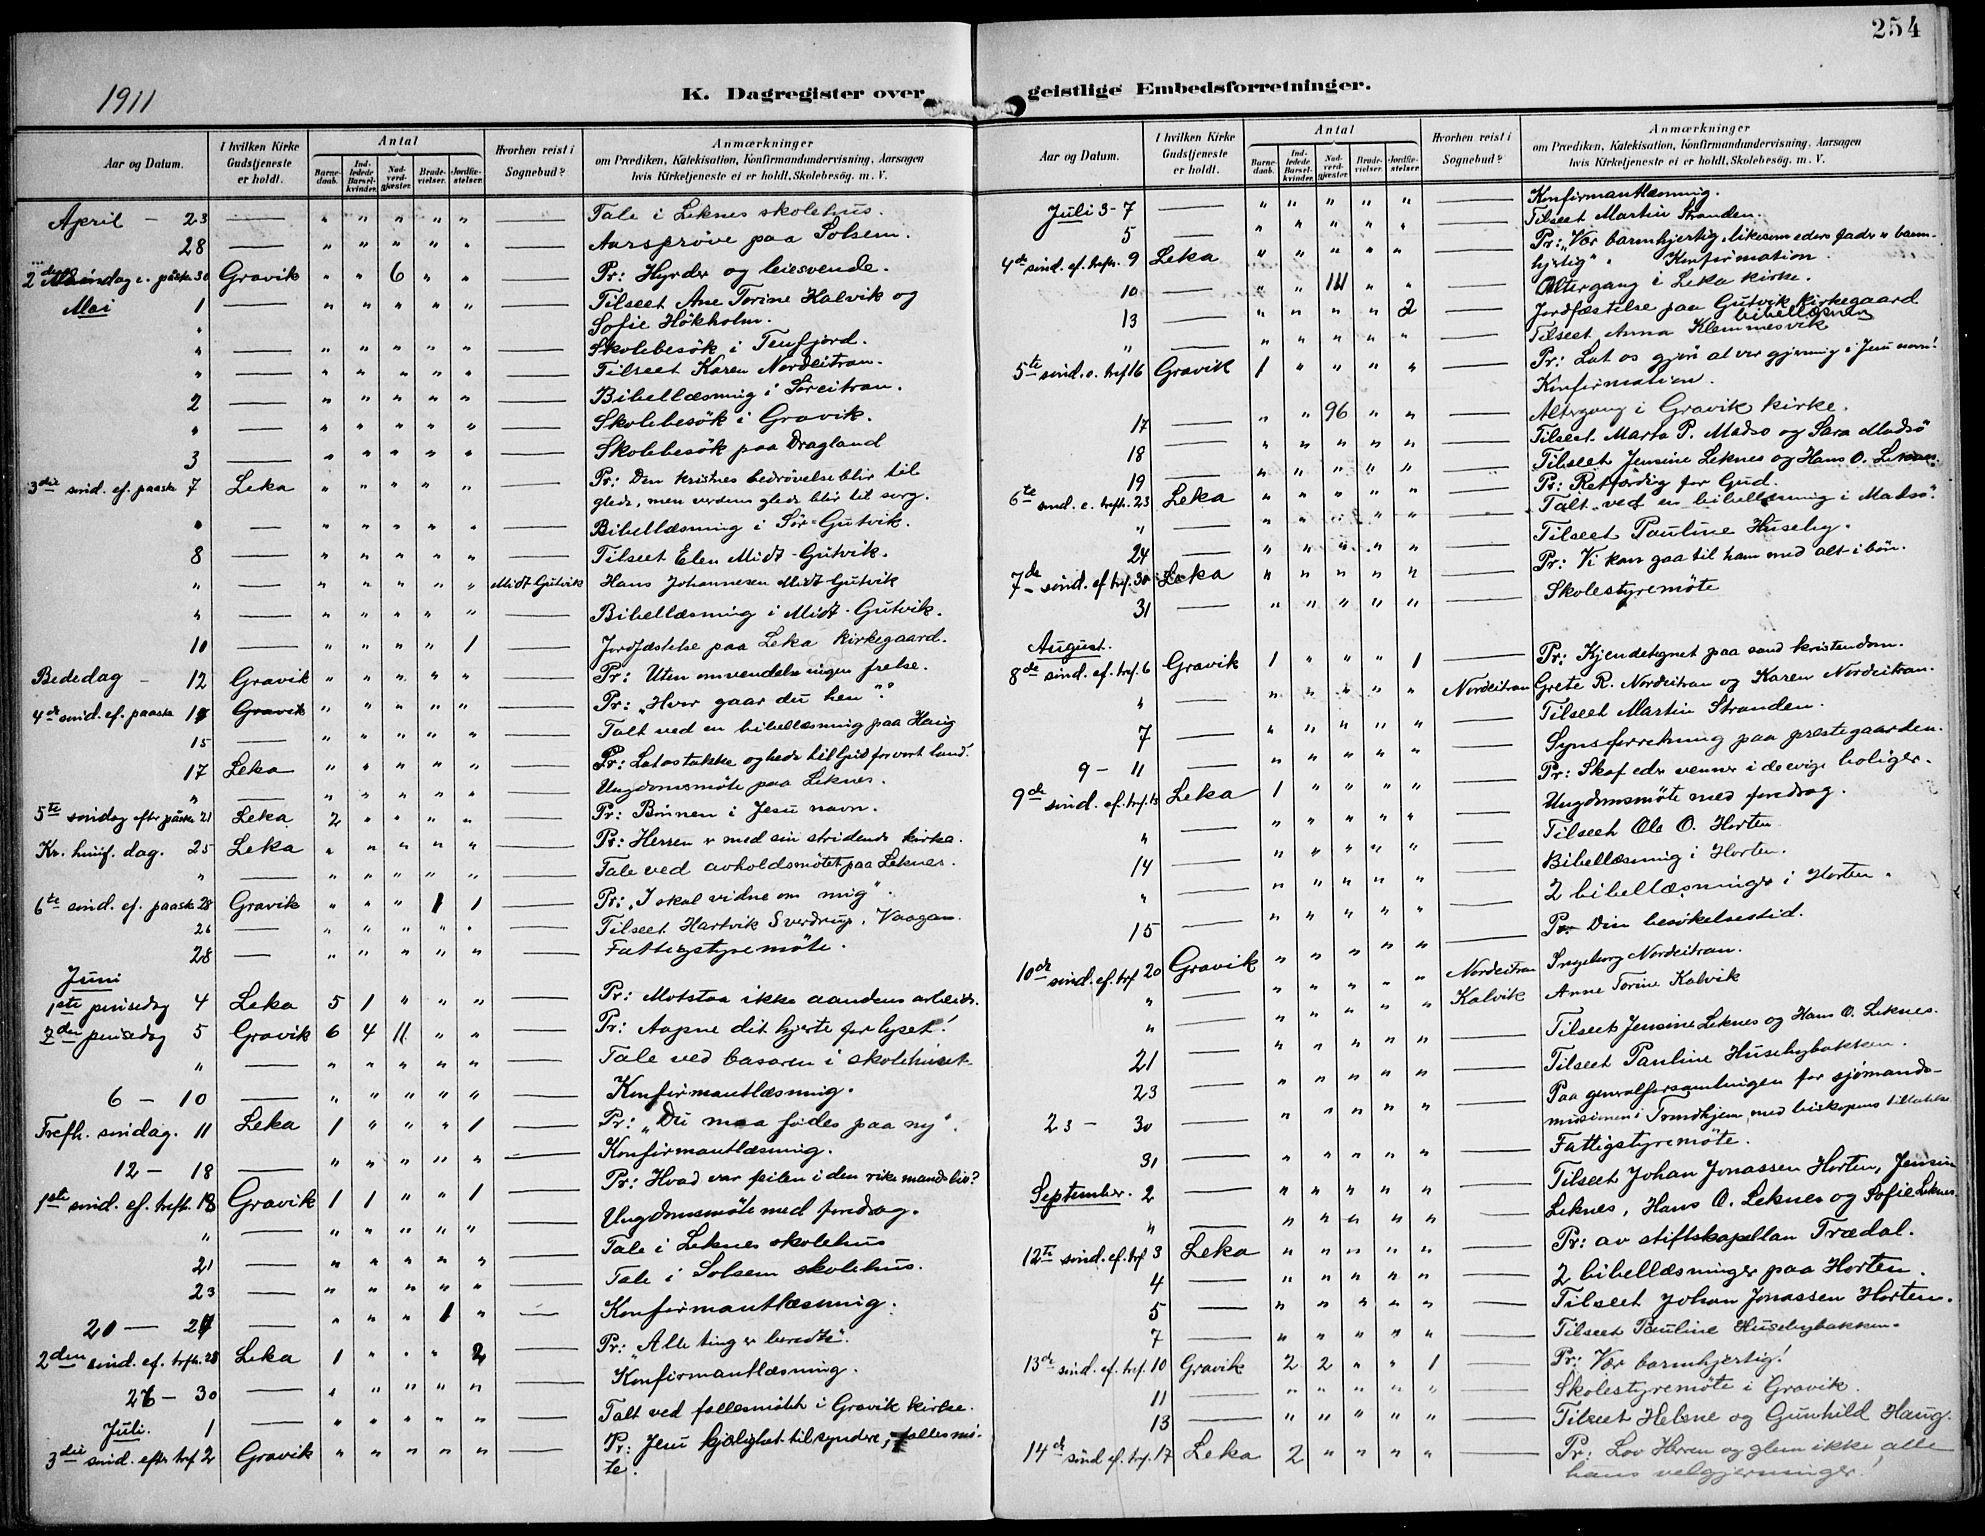 254
1911
K. Dagregister over geistlige Embedsforretninger.
Aar og Datum. I hvilken Kirke Gudstjeneste er holdt. Antal Barnedaab. Indledede Barselkvinder. Nadverdgjæster. Brudevielser. Jordfæstelser. Hvorhen reist i Sognebud? Anmærkninger om Prædiken, Katekisation, Konfirmandundervisning, Aarsagen hvis Kirketjeneste ei er holdt, Skolebesøg. m. V.
April - 23 — " " " " " — Tale i Leknes skolehus.
28 — " " " " " — Aarsprøve paa Solsem.
2den søndag e. påske 30 Gravik " " 6 " " — Pr: Hyrder og leiesvende.
Mai 1 — " " " " " — Tilseet Ane Torine Kalvik og
Sofie Hökholm.
" — " " " " " — Skolebesök i Terfjord.
" — " " " " " — Tilseet Karen Nordeitran.
2 — " " " " " — Bibellæsning i Søreitran.
" — " " " " " — Skolebesök i Gravik.
3 — " " " " " — Skolebesök paa Dragland
3die sønd. ef. paaske 7 Leka " " " " " — Pr: Den kristnes bedrøvelse blir til
glede, men verdens glede blir til sorg.
" — " " " " " — Bibellæsning i Sör-Gutvik.
8 — " " " " " — Tilseet Elen Midt-Gutvik.
" — " " " " " Midt-Gutvik Hans Johannesen Midt-Gutvik
" — " " " " " — Bibellæsning i Midt-Gutvik.
10 — " " " " 1 — Jordfæstelse paa Leka kirkegaard.
Bededag - 12 Gravik " " " " " — Pr: Uten omvendelse ingen frelse.
4de sønd. ef. paaske 14 Gravik " " " " " — Pr: "Hvor gaar du hen".
15 — " " " " " — Talt ved en bibellæsning paa Haug
17 Leka " " " " " — Pr: Lat os takke og bede til Gud for vort land.
" — " " " " " — Ungdomsmöte paa Leknes.
5te söndag efter påske 21 Leka 2 " " " " — Pr: Bönnen i Jesu navn.
Kr. himf. dag. 25 Leka " " " " " — Pr: Herren er med sin stridende kirke.
" — " " " " " — Tale ved avholdsmötet paa Leknes.
6te sönd. ef. paaske 28 Gravik " " " 1 1 — Pr: "I skal vidne om mig".
26 — " " " " " — Tilseet Hartvik Sverdrup, Vaagan.
28 — " " " " " — Fattigstyremöte.
Juni
1ste pinsedag 4 Leka 5 1 " " " — Pr: Motstaa ikke aandens arbeide.
2den pinsedag 5 Gravik 6 4 11 " " — Pr: Aapne dit hjerte for lyset!
" — " " " " " — Tale ved basaren i skolehuset.
6 - 10 — " " " " " — Konfirmantlæsning.
Trefh. søndag. 11 Leka 1 " " " 1 — Pr: "Du maa födes paa ny".
12 - 18 — " " " " " — Konfirmantlæsning.
1ste sönd. ef. trefh. 18 Gravik 1 1 " " 1 — Pr: Hvad var feilen i den rike mands liv?
" — " " " " " — Ungdomsmöte med foredrag.
21 — " " " " " — Tale i Leknes skolehus
23 — " " " " " — Tale i Solsem skolehus.
20 — 24 — " " " 1 " — Konfirmantlæsning.
2den sönd. ef. trefh. 25 Leka 1 " " " 2 — Pr: "Alle ting er beredte".
26 - 30 — " " " " " — Konfirmantlæsning.
Juli. 1 — " " " " " — Talt ved fællesmötet i Gravik kirke.
3die sönd. efter tref 2 Gravik " " " " " — Pr: Jesu kjærlighet til syndere, fællesmö-
te.
Aar og Datum. I hvilken Kirke Gudstjeneste er holdt. Antal Barnedaab. Indledede Barselkvinder. Nadverdgjæster. Brudevielser. Jordfæstelser. Hvorhen reist i Sognebud? Anmærkninger om Prædiken, Katekisation, Konfirmandundervisning, Aarsagen hvis Kirketjeneste ei er holdt, Skolebesøg. m. V.
Juli 3-7 — " " " " " — Konfirmantlæsning.
5 — " " " " " — Tilseet Martin Stranden.
4de sönd. ef. trefh. 9 Leka " " " " " — Pr: "Vær barmhjertig, likesom eders fader er barm-
hjertig". Konfirmation.
10 — " " 111 " " — Altergang i Leka kirke.
13 — " " " " 2 — Jordfæstelse paa Gutvik kirkegaard
bibellæsning
" — " " " " " — Tilseet Anna Klemmesvik
5te sönd. e. tref 16 Gravik 1 " " " " — Pr: Lat os gjöre alt vor gjerning i Jesu navn!
Konfirmation.
17 — " " 96 " " — Altergang i Gravik kirke.
18 — " " " " " — Tilseet Marta P. Madsö og Sara Madsö
19 — " " " " " — Tilseet Jensine Leknes og Hans O. Leknes.
6te sönd. e. trefh. 23 Leka " " " " " — Pr: Retfærdig for Gud.
" — " " " " " — Talt ved en bibellæsning i Madsö.
24 — " " " " " — Tilseet Pauline Huseby.
7de sönd. ef. tref. 30 Leka " " " " " — Pr: Vi kan gaa til ham med alt i bön.
31 — " " " " " — Skolestyremöte
August.
8de sönd. ef. tref. 6 Gravik 1 " " " 1 — Pr: Kjendetegnet paa sand kristendom.
" " " " " " Nordeitran Grete R. Nordeitran og Karen Nordeitran.
7 — " " " " " — Tilseet Martin Stranden.
9 - 11 — " " " " " — Synsforretning paa prestegaarden.
9de sönd. ef. tref. 13 Leka 1 " " " " — Pr: Skaf eder venner i de evige boliger.
" — " " " " " — Ungdomsmöte med foredrag.
14 — " " " " " — Tilseet Ole O. Horten
" — " " " " " — Bibellæsning i Horten.
15 — " " " " " — 2 bibellæsninger i Horten.
10de sönd. ef. tref 20 Gravik " " " " " — Pr: Din besökelsestid.
" " " " " " Nordeitran Ingeborg Nordeitran.
" " " " " " Kalvik Anne Torine Kalvik
21 — " " " " " — Tilseet Jensine Leknes og Hans O. Leknes.
23 — " " " " " — Tilseet Pauline Husebybakken.
23 - 30 — " " " " " — Paa generalforsamlingen for sjömands-
misionen i Trondhjem, med biskopens tilladelse
31 — " " " " " — Fattigstyremöte.
September. 2 — " " " " " — Tilseet Johan Jonassen Horten, Jensine
Leknes, Hans O. Leknes og Sofie Leknes.
12te sönd. ef. tref 3 Leka " " " " " — Pr: av stiftskapellan Trædal.
4 — " " " " " — 2 bibellæsninger paa Horten.
5 — " " " " " — Tilseet Johan Jonassen Horten.
7 — " " " " " — Tilseet Pauline Husebybakken.
13de sönd. ef. tref. 10 Gravik 2 2 " " 1 — Pr: Vær barmhjertig!
11 — " " " " " — Skolestyremöte i Gravik.
13 — " " " " " — Tilseet Helene og Gunhild Haug.
14de sönd ef. tref. 17 Leka 2 " " " " — Pr: Lov Herren og glem ikke alle
hans velgjerninger!